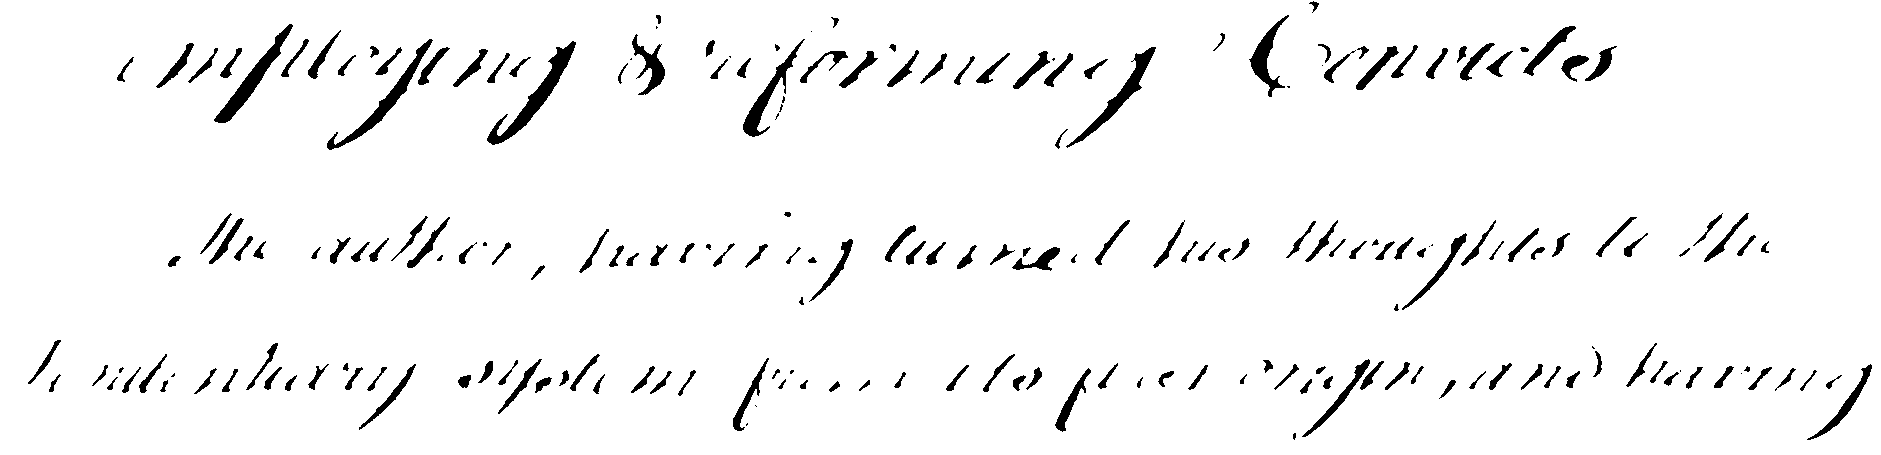 employing & reforming Convicts
The author, having turned his thoughts to the
Penitentiary system from its first origin, and having